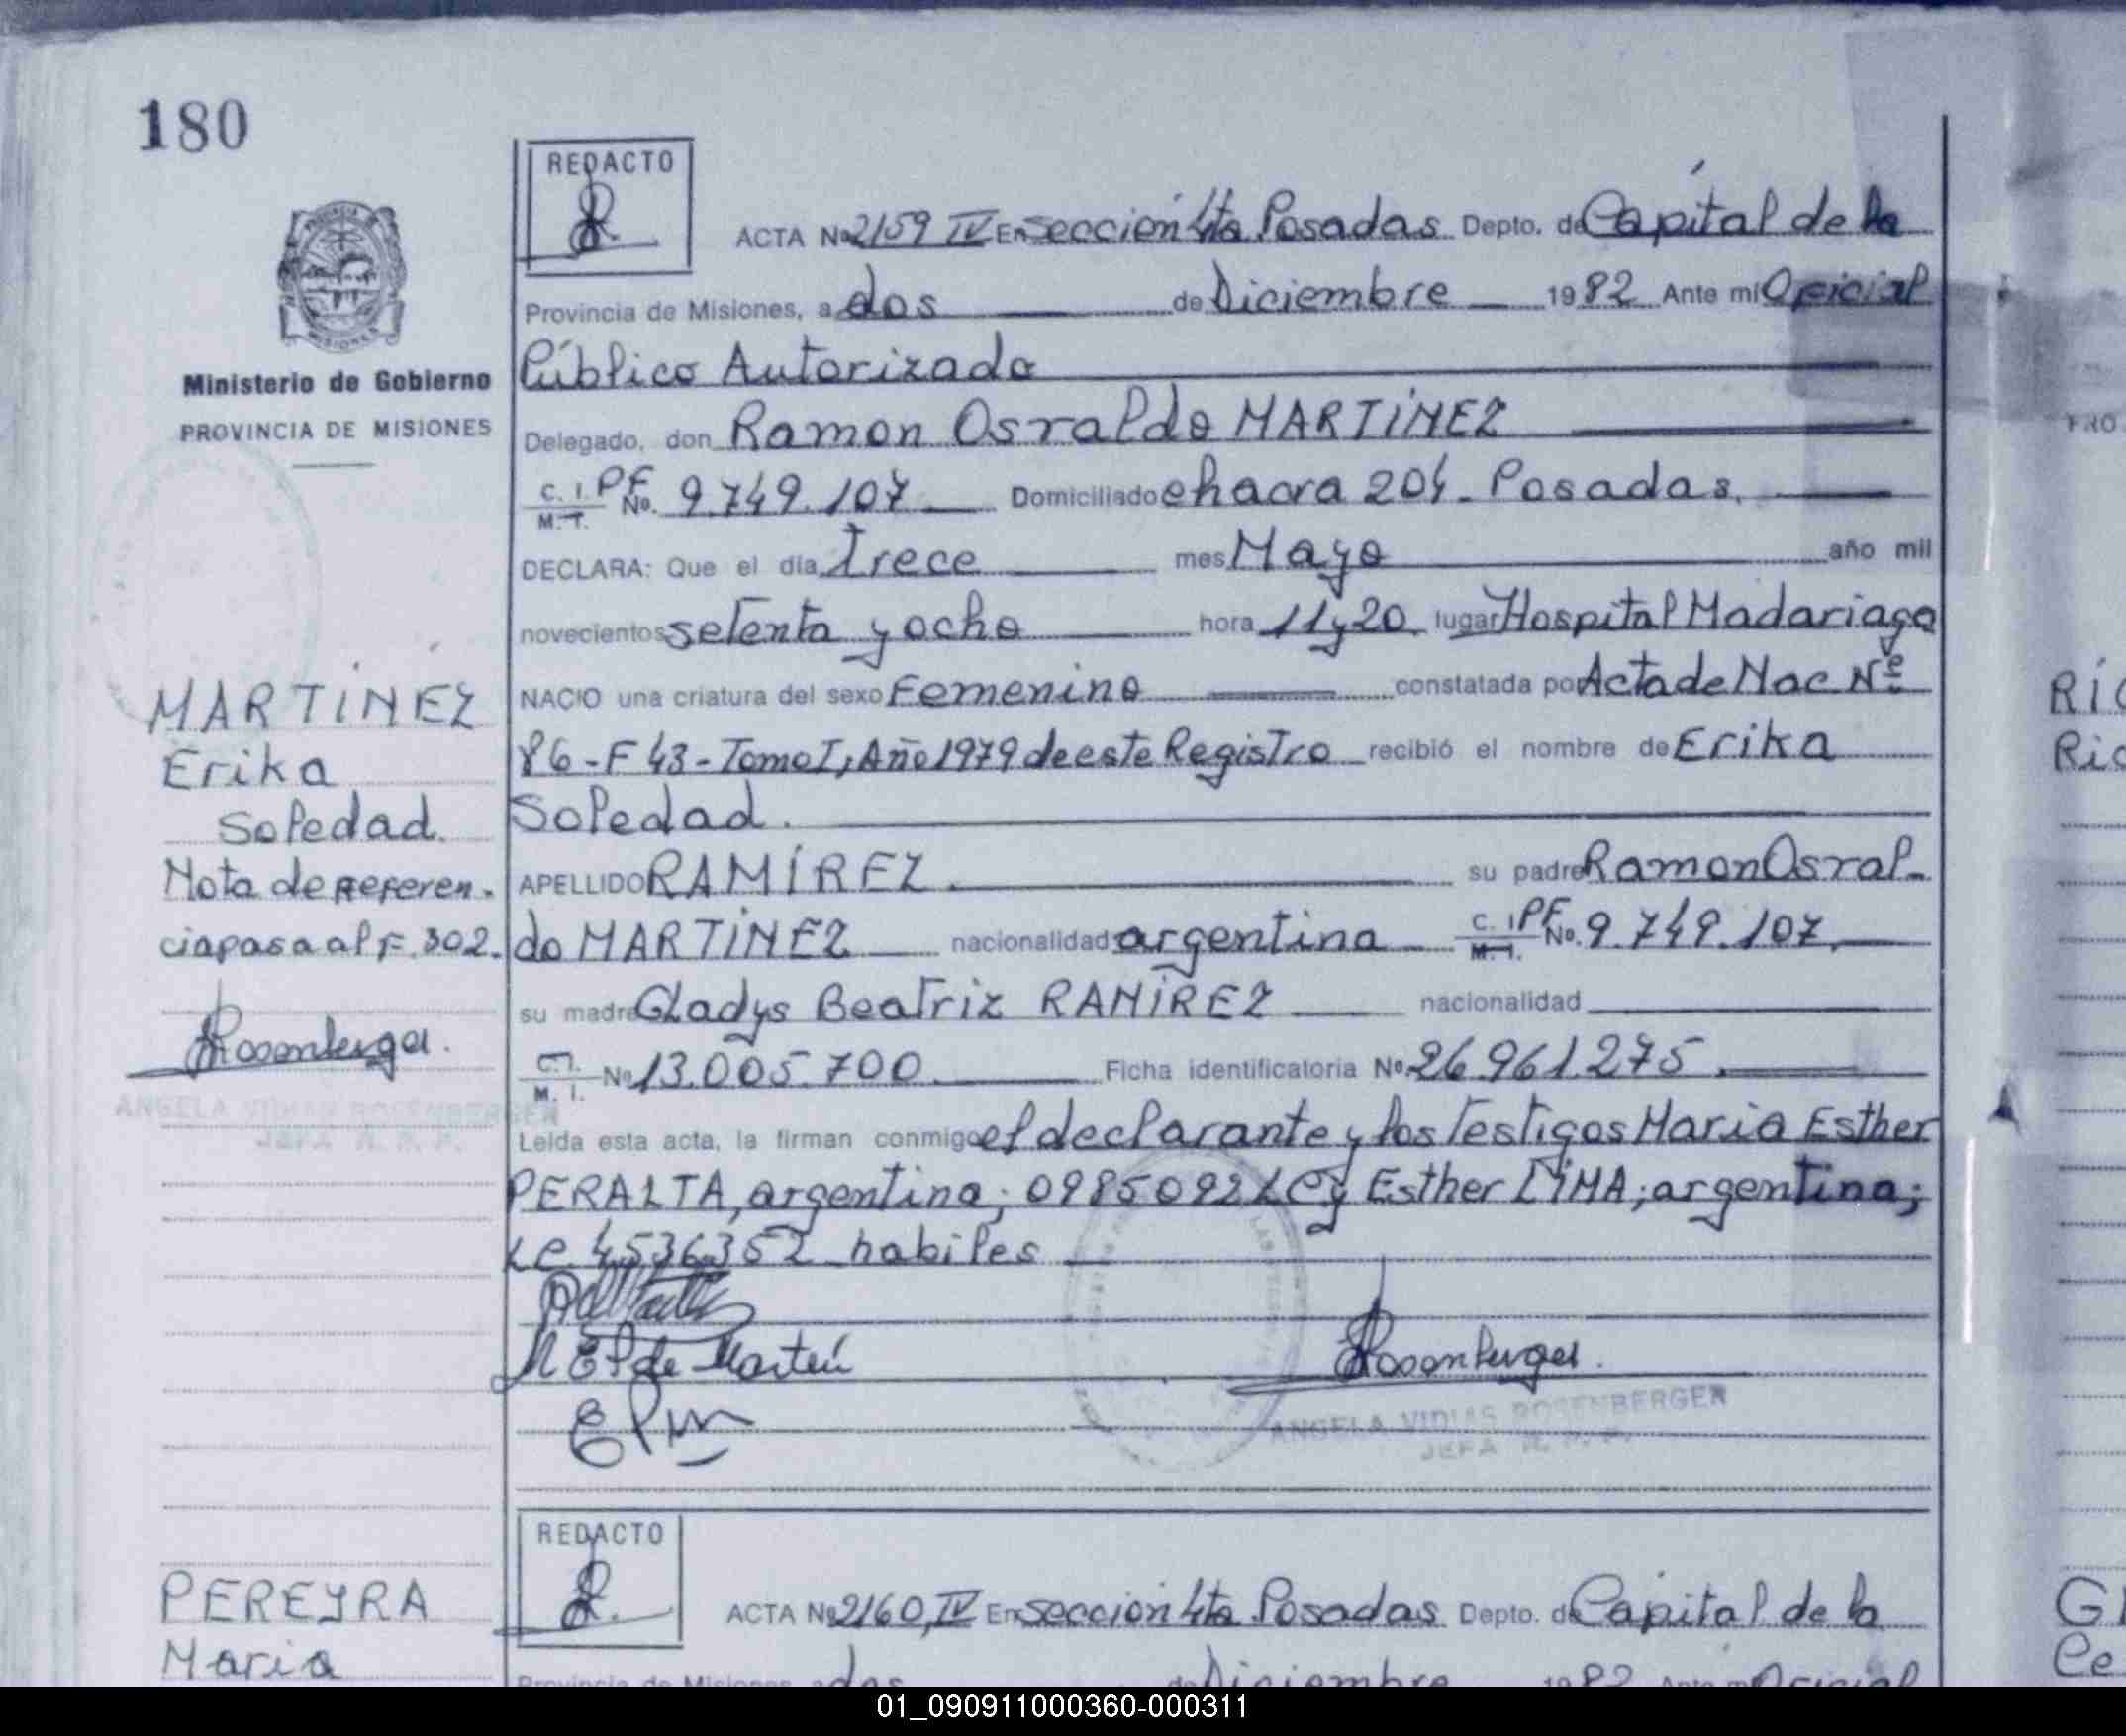 180
REDACTO
ACTA Nº 2159 IV En sección 4ta Posadas Depto. de Capital de la
Provincia de Misiones, a dos de Diciembre 1982 Ante mí Oficial
Ministerio de Gobierno
PROVINCIA DE MISIONES
Público Autorizado
Delegado, don Ramon Osvaldo MARTÍNEZ
C. I. M. I. PF No. 9.749.107 Domiciliado chacra 204 - Posadas.
DECLARA: Que el día trece mes Mayo año mil
novecientos setenta y ocho hora 11 y 20 lugar Hospital Madariaga
NACIO una criatura del sexo Femenino constatada por Acta de Nac Nº
86 - F 43 - Tomo I, Año 1979 de este Registro recibió el nombre de Erika
Soledad.
APELLIDO RAMÍREZ su padre Ramon Osval-
do MARTÍNEZ nacionalidad argentina C. I. M. I. PF No. 9.749.107.
su madre Gladys Beatriz RAMÍREZ nacionalidad
C. I. M. I. No 13.005.700 Ficha identificatoria Nº 26.961.275.
Leída esta acta, la firman conmigo el declarante y los testigos Maria Esther
PERALTA, argentina; 0985092 LC y Esther LIMA; argentina;
LC 4536352 habiles
MARTÍNEZ
Erika
Soledad.
Nota de referen-
cia pasa al F. 302.
Rosenberger.
ANGELA VIDIAS ROSENBERGER
JEFA R. P. P.
M E P de Martín
Rosenberger.
ANGELA VIDIAS ROSENBERGER
JEFA R. P. P.
REDACTO
ACTA Nº 2160, IV En sección 4ta Posadas Depto. de Capital de la
Provincia de Misiones, a dos de Diciembre 1982 Ante mí Oficial
PEREYRA
Maria
01_090911000360-000311